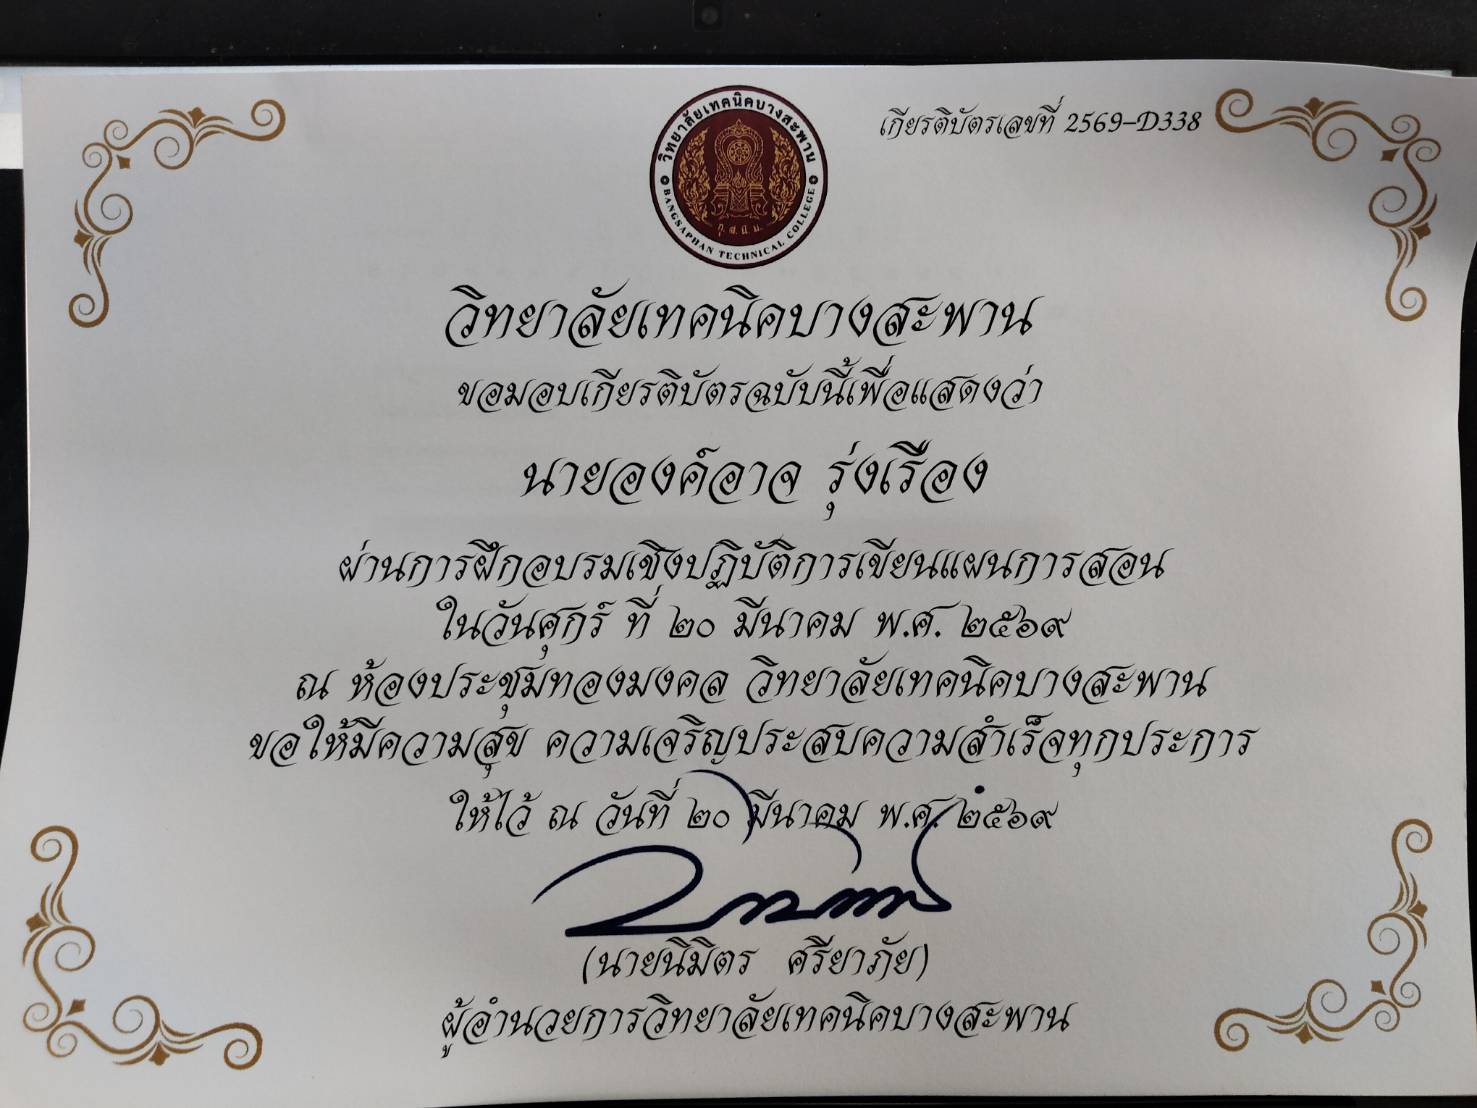 เกียรติบัตรเลขที่ 2569-D338
วิทยาลัยเทคนิคบางสะพาน
BANGSAPHAN TECHNICAL COLLEGE
วิทยาลัยเทคนิคบางสะพาน
ขอมอบเกียรติบัตรฉบับนี้เพื่อแสดงว่า
นายองค์อาจ รุ่งเรือง
ผ่านการฝึกอบรมเชิงปฏิบัติการเขียนแผนการสอน
ในวันศุกร์ ที่ ๒๐ มีนาคม พ.ศ. ๒๕๖๙
ณ ห้องประชุมทองมงคล วิทยาลัยเทคนิคบางสะพาน
ขอให้มีความสุข ความเจริญประสบความสำเร็จทุกประการ
ให้ไว้ ณ วันที่ ๒๐ มีนาคม พ.ศ. ๒๕๖๙
(นายนิมิตร ศรียาภัย)
ผู้อำนวยการวิทยาลัยเทคนิคบางสะพาน